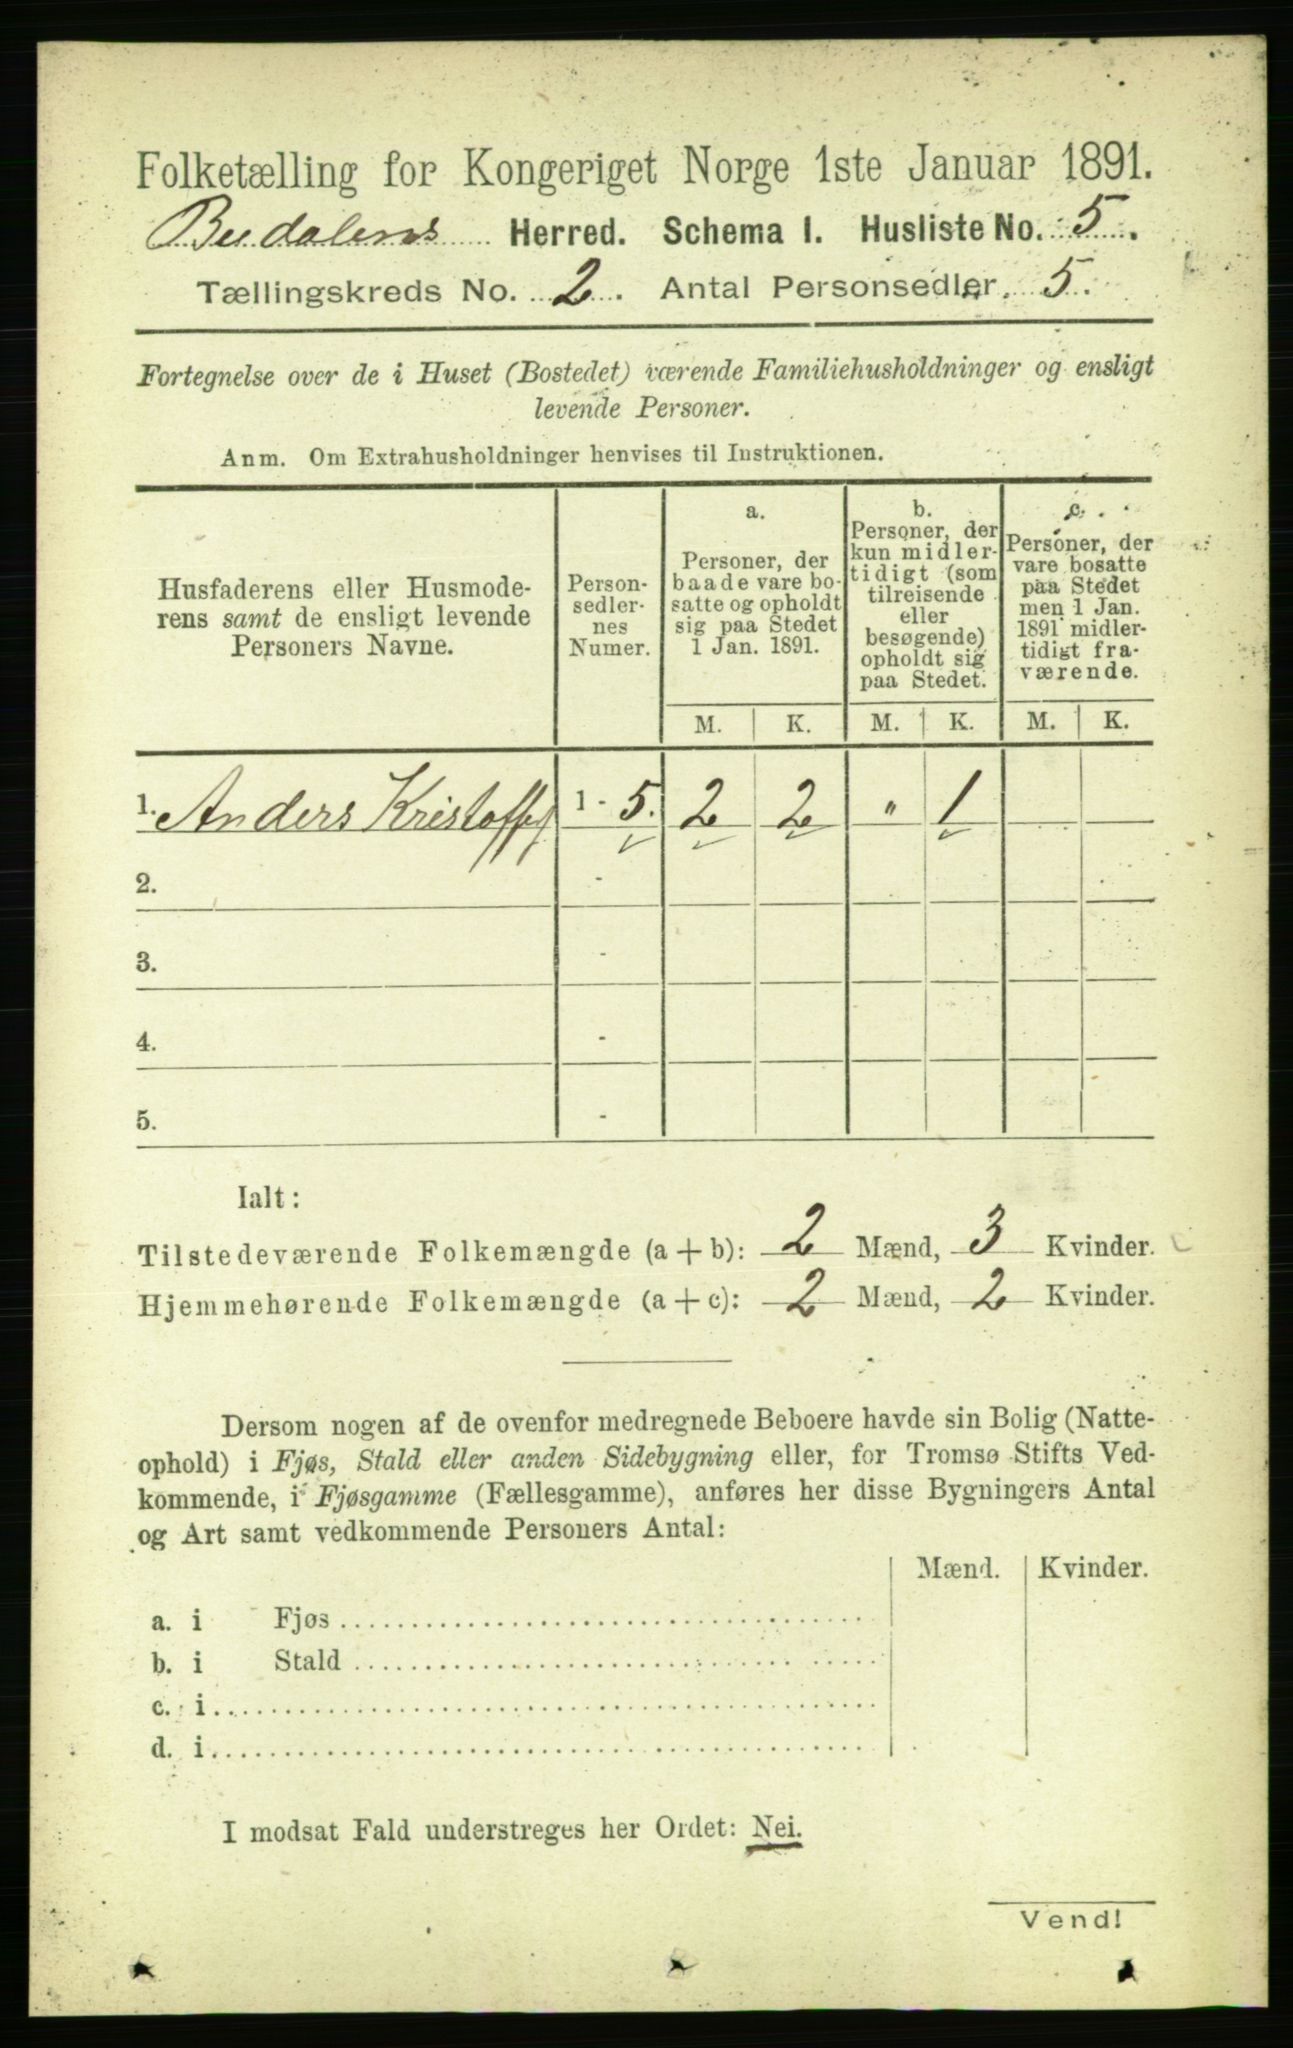 Folketælling for Kongeriget Norge 1ste Januar 1891.
Budalens Herred. Schema I. Husliste No. 5.
Tællingskreds No. 2. Antal Personsedler. 5.
Fortegnelse over de i Huset (Bostedet) værende Familiehusholdninger og ensligt
levende Personer.
Anm. Om Extrahusholdninger henvises til Instruktionen.
Husfaderens eller Husmode-
rens samt de ensligt levende
Personers Navne.
Person-
sedler-
nes
Numer.
a.
Personer, der
baade vare bo-
satte og opholdt
sig paa Stedet
1 Jan. 1891.
b.
Personer, der
kun midler-
tidigt (som
tilreisende
eller
besøgende)
opholdt sig
paa Stedet.
c.
Personer, der
vare bosatte
paa Stedet
men 1 Jan.
1891 midler-
tidigt fra-
værende.
M. K. M. K. M. K.
1. Anders Kristoff 1 - 5. 2 2 " 1
2. -
3. -
4. -
5. -
Ialt:
Tilstedeværende Folkemængde (a + b): 2 Mænd, 3 Kvinder.
Hjemmehørende Folkemængde (a + c): 2 Mænd, 2 Kvinder.
Dersom nogen af de ovenfor medregnede Beboere havde sin Bolig (Natte-
ophold) i Fjøs, Stald eller anden Sidebygning eller, for Tromsø Stifts Ved-
kommende, i Fjøsgamme (Fællesgamme), anføres her disse Bygningers Antal
og Art samt vedkommende Personers Antal:
Mænd. Kvinder.
a. i Fjøs
b. i Stald
c. i
d. i
I modsat Fald understreges her Ordet: Nei.
Vend!